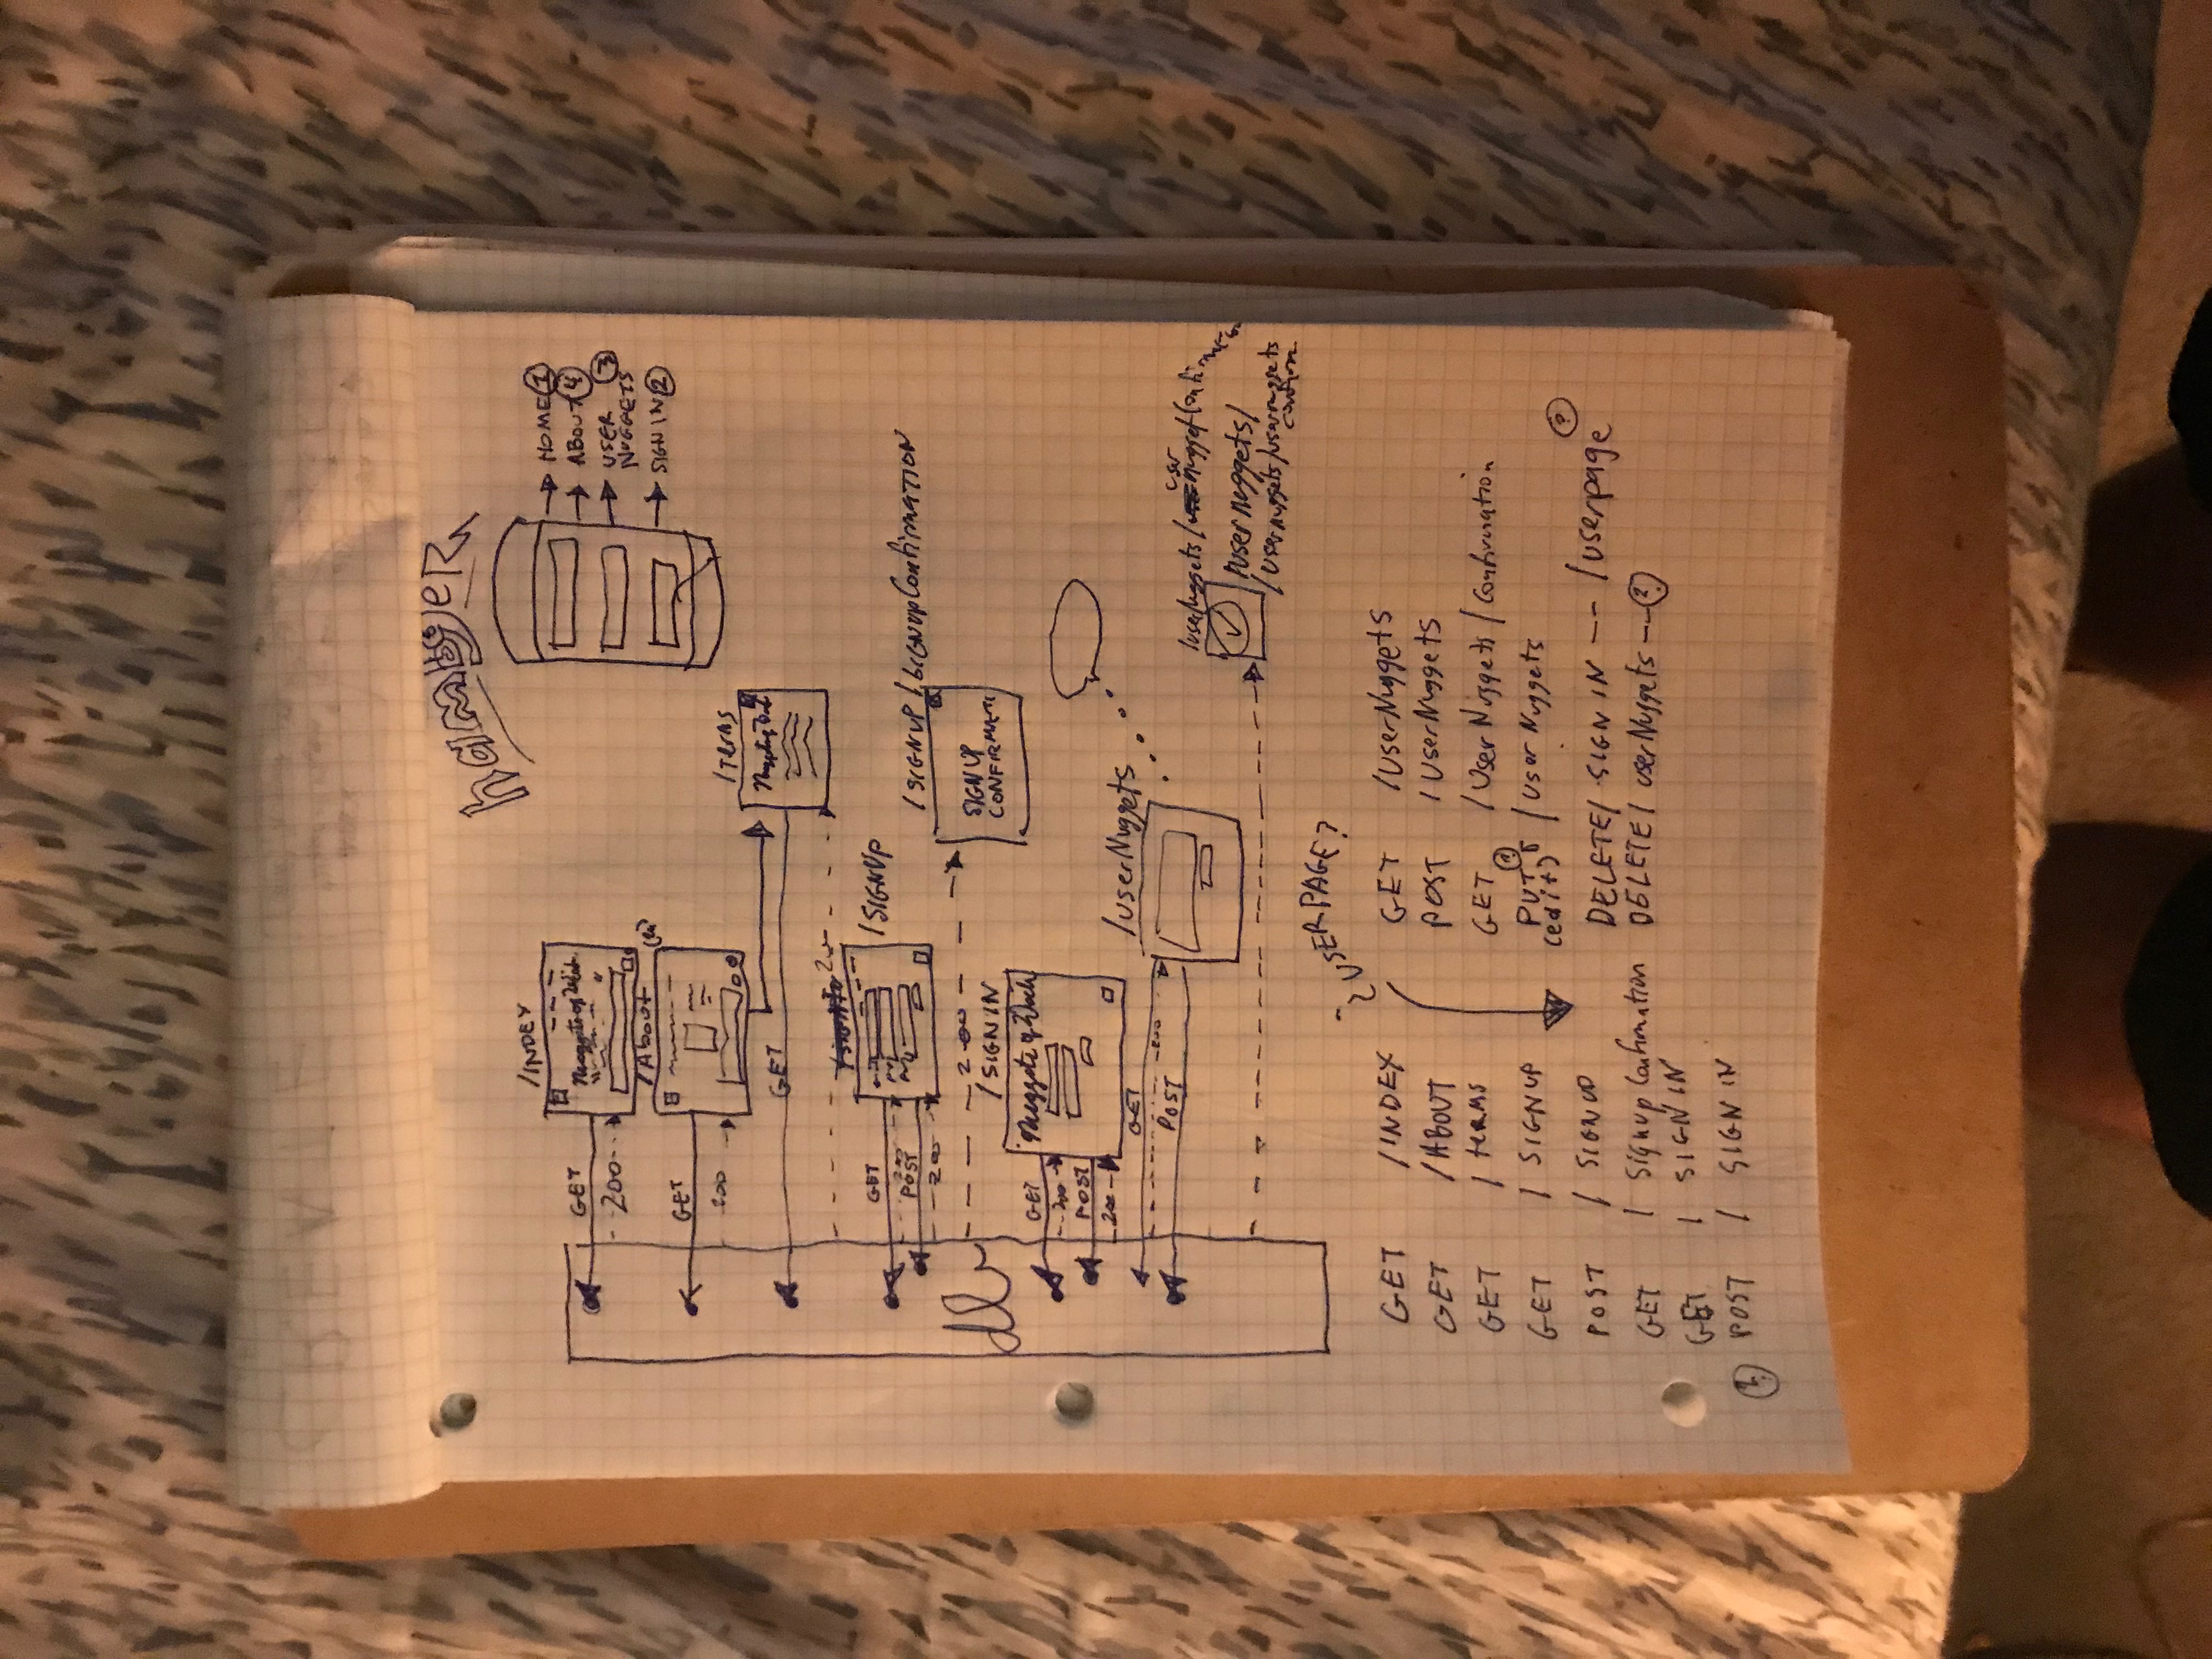 hambgeR
/INDEX
GET
200
Nuggets of
HOME 1
ABOUT 4
USER 3
NUGGETS
SIGN IN 2
/About
GET
200
/Terms
GET
200
/SIGNUP
GET
200
POST
200
/SIGNUP/SIGNUPConfirmATION
200
SIGN UP
CONFIRMATI
db
/SIGN IN
Nuggets of
GET
200
POST
200
/userNuggets
GET
200
POST
/userNuggets/user nugget Confirmation
/user nuggets/
/usernuggets/usernuggets
confirm
¿USERPAGE?
GET /INDEX
GET /ABOUT
GET / terms
GET / SIGNUP
POST / SIGNUP
GET / Signup Confirmation
GET / SIGN IN
? POST / SIGN IN
GET /UserNuggets
POST /UserNuggets
GET /User Nuggets / Confirmation
PUT ? / User Nuggets
(edit)
DELETE/ SIGN IN -- /userpage ?
DELETE/ userNuggets -- ?